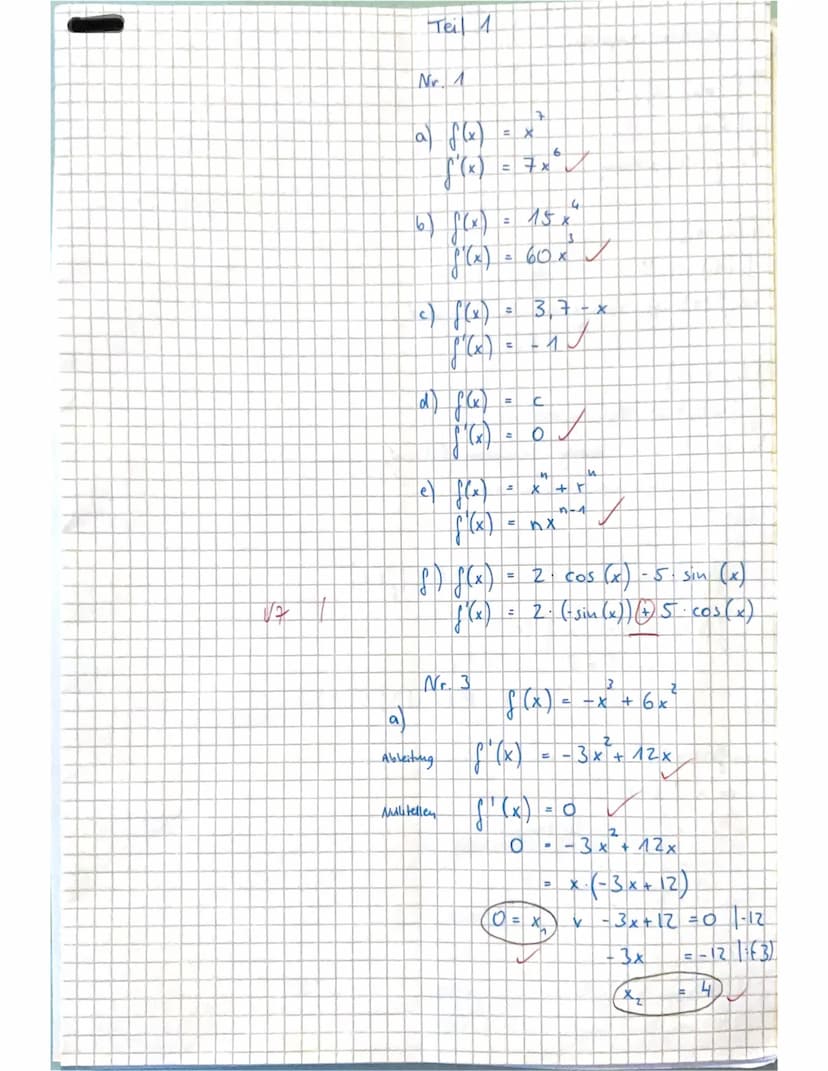 Teil 1
Nr. 1
a) f(x) = x⁷
f'(x) = 7x⁶ ✓
b) f(x) = 15x⁴
f'(x) = 60x³ ✓
c) f(x) = 3,7 - x
f'(x) = -1 ✓
d) f(x) = c
f'(x) = 0 ✓
e) f(x) = xⁿ + rⁿ
f'(x) = nxⁿ⁻¹ ✓
f) f(x) = 2 · cos(x) - 5 · sin(x)
f'(x) = 2 · (-sin(x)) + 5 · cos(x)
Nr. 3
a) f(x) = -x³ + 6x²
Ableitung f'(x) = -3x² + 12x ✓
Nullstellen f'(x) = 0 ✓
0 = -3x² + 12x
= x·(-3x+12)
0 = x₁ ∨ -3x+12 = 0 |-12
✓ -3x = -12 |:(-3)
x₂ = 4 ✓